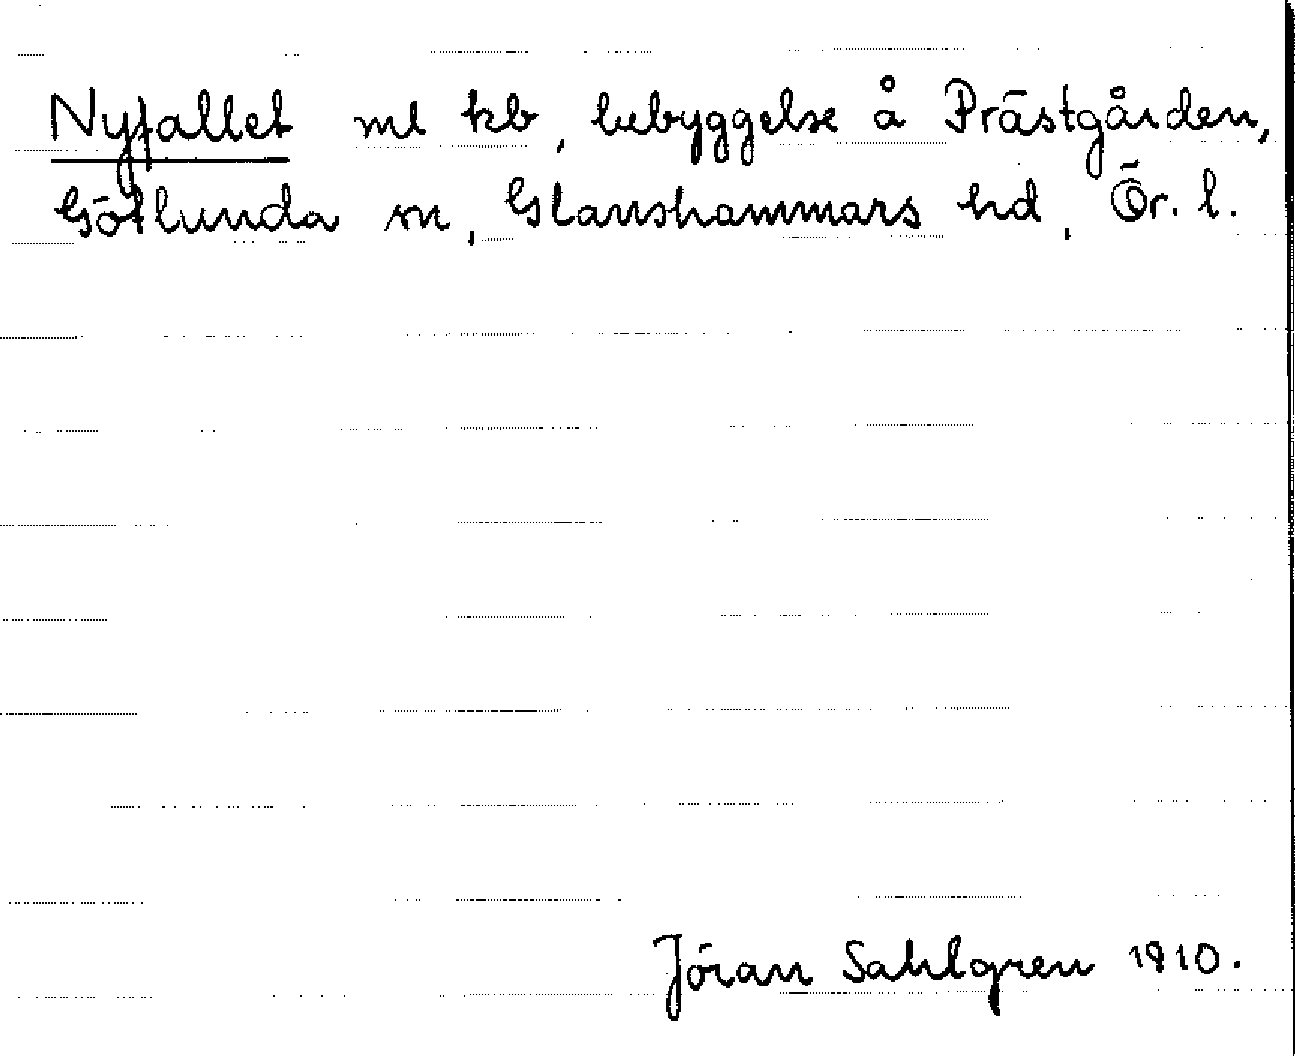 Nyfallet ml kb, bebyggelse å Prästgården,
Götlunda sn, Glanshammars hd, Ör. l.
Jöran Sahlgren 1910.